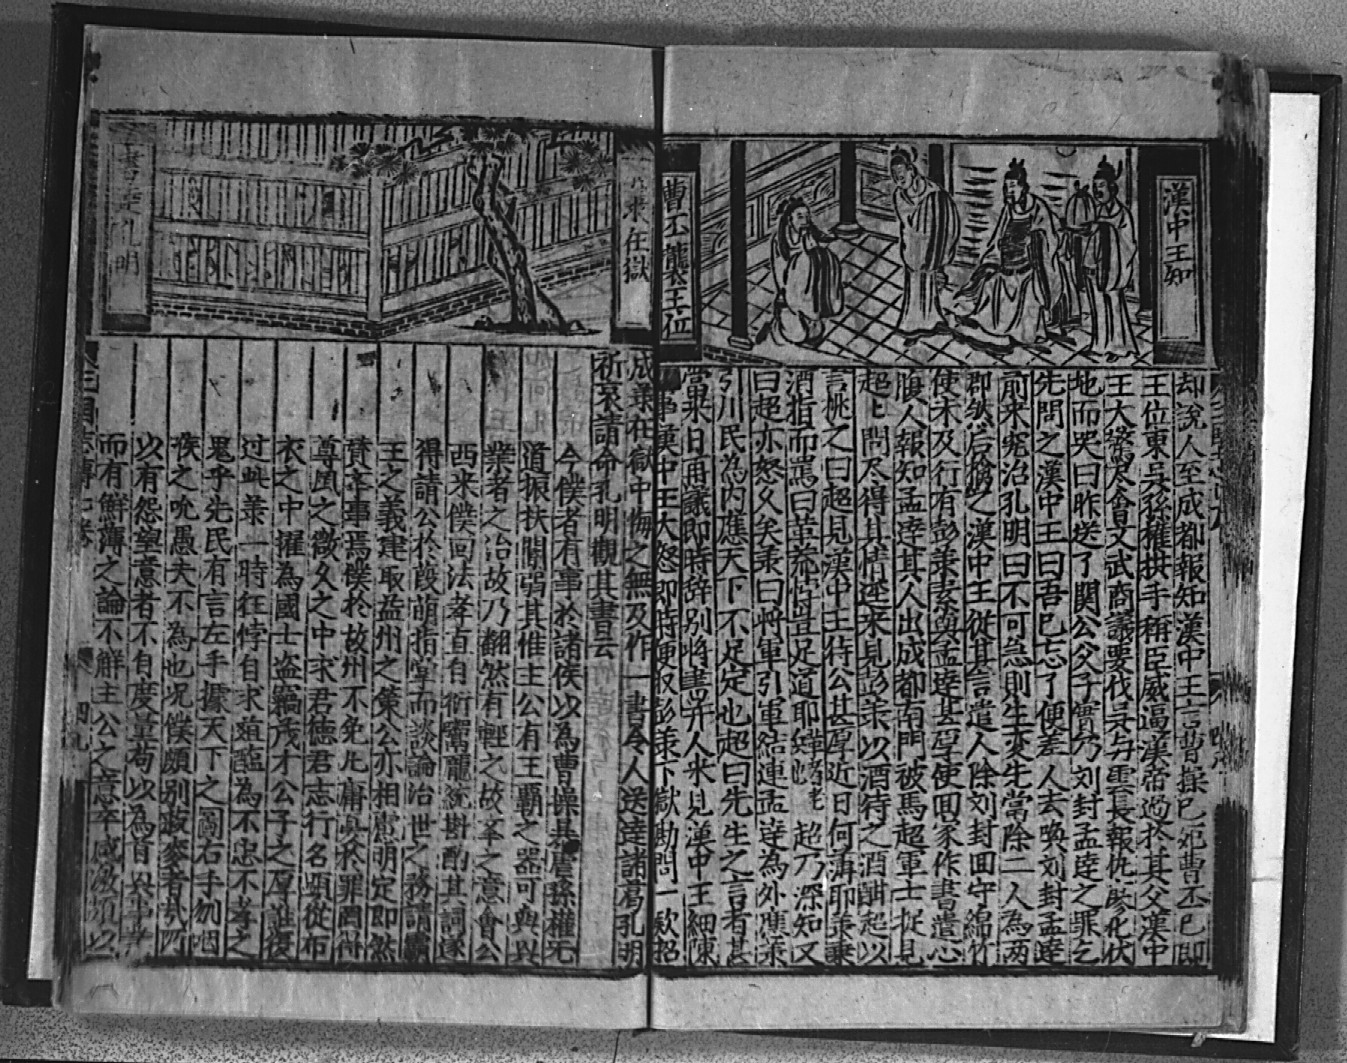 漢中王知
曹丕襲王位
却說人至成都報知漢中王言曹操已死曹丕已即
王位東吳孫權拱手稱臣威逼漢帝過於其父漢中
王大驚尽會文武商議要伐吳与雲長報仇廖化伏
地而哭曰昨送了関公父子實乃刘封孟達之罪乞
先問之漢中王曰吾已忘了便差人去喚刘封孟達
前来究治孔明曰不可急則生变先當除二人為两
郡然后擒之漢中王從其言遣人除刘封回守綿竹
使未及行有彭羕素與孟達甚厚使回家作書遣心
腹人報知孟達其人出成都南門被馬超軍士捉見
超上問尽得其情逕来見彭羕以酒待之酒酣超以
言挑之曰超見漢中王待公甚厚近日何薄耶羕乘
酒指而罵曰革荒悖豈足道耶 超乃深知又
曰超亦怒久矣羕曰將軍引軍結連孟達為外應羕
引川民為内應天下不足定也超曰先生之言者甚
當果日再議即時辞別將書并人来見漢中王細陳
其事漢中王大怒即時便収彭羕下獄勘問一款招
羕在獄
書至孔明
成羕在獄中悔之無及作一書令人送達諸葛孔明
祈哀請命孔明觀其書云
今僕者有事於諸侯以為曹操暴虐孫權无
道振扶闇弱其惟主公有王霸之器可與興
業者之治故乃翻然有輕之故羊之意會公
西来僕回法孝直自衒鬻龐統斟酌其詞遂
得請公於葭萌指掌而談論治世之務請霸
王之義建取益州之策公亦相慮明定即然
賛亭事焉僕於故州不免凡庸真於罪罔得
尊風之激久之中求君德君志行名頭從布
衣之中擢為國士盗竊茂才公子之厚誰復
過此羕一時狂悖自求葅醢為不忠不孝之
鬼乎先民有言左手據天下之圖右手刎咽
喉之吮愚夫不為也况僕頗別菽麥者哉所
以有怨望意者不自度量苟以為首興事業
而有鮮薄之論不鮮主公之意卒感激頭以